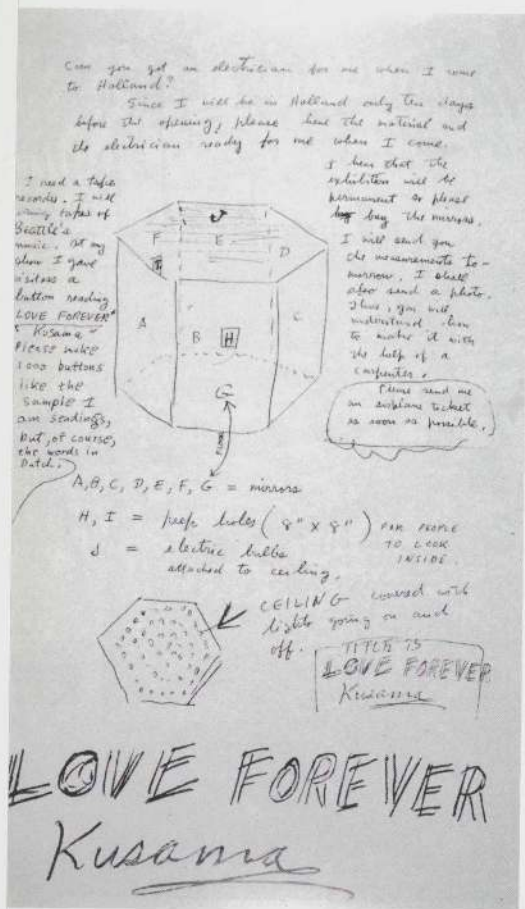 Can you get an electrician for me when I come
to Holland?
Since I will be in Holland only ten days
before the opening, please have the material and
the electrician ready for me when I come.
I need a tape
recorder. I will
bring tapes of
Beattle's
music. At my
show I gave
visitors a
button reading
LOVE FOREVER"
"Kusama"
Please make
1000 buttons
like the
sample I
am sendings,
but, of course,
the words in
Dutch.
I hear that the
exhibition will be
permanent so please
buy the mirrors.
I will send you
the measurements to-
morrow. I shall
also send a photo.
Thus, you will
understand how
to make it with
the help of a
carpenter.
Please send me
an airplane ticket
as soon as possible.
J
F
E
D
I
A
B
H
C
G
FLOOR
A, B, C, D, E, F, G = mirrors
H, I = peep holes ( 8" x 8" ) FOR PEOPLE
TO LOOK
INSIDE.
J = electric bulbs
attached to ceiling.
CEILING covered with
lights going on and
off.
TITLE IS
LOVE FOREVER
Kusama
LOVE FOREVER
Kusama